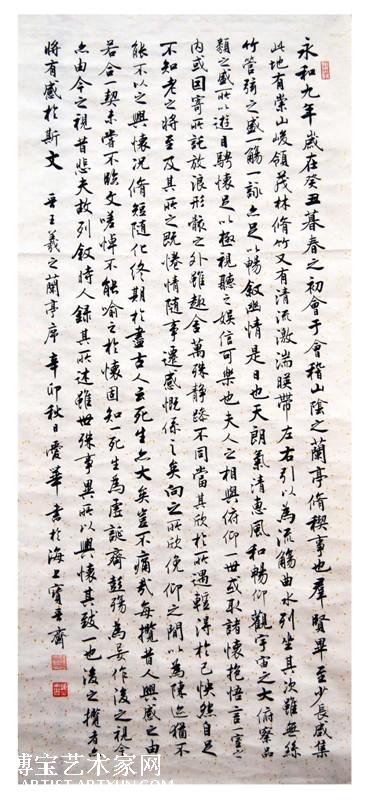 永和九年歲在癸丑暮春之初會于會稽山陰之蘭亭脩稧事也群賢畢至少長咸集
此地有崇山峻領茂林脩竹又有清流激湍暎帶左右引以為流觴曲水列坐其次雖無絲
竹管弦之盛一觴一詠亦足以暢叙幽情是日也天朗氣清惠風和暢仰觀宇宙之大俯察品
類之盛所以遊目騁懷足以極視聽之娛信可樂也夫人之相與俯仰一世或取諸懷抱悟言一室之
內或因寄所託放浪形骸之外雖趣舍萬殊靜躁不同當其欣於所遇蹔得於己怏然自足
不知老之將至及其所之既惓情隨事遷感慨係之矣向之所欣俛仰之間以為陳迹猶不
能不以之興懷況脩短隨化終期於盡古人云死生亦大矣豈不痛哉每攬昔人興感之由
若合一契未嘗不臨文嗟悼不能喻之於懷固知一死生為虛誕齊彭殤為妄作後之視今
亦由今之視昔悲夫故列叙時人錄其所述雖世殊事異所以興懷其致一也後之攬者亦
將有感於斯文 晉王羲之蘭亭序 辛卯秋日愛華書於海上寶晉齋
博宝艺术家网
ARTIST.ARTXUN.COM